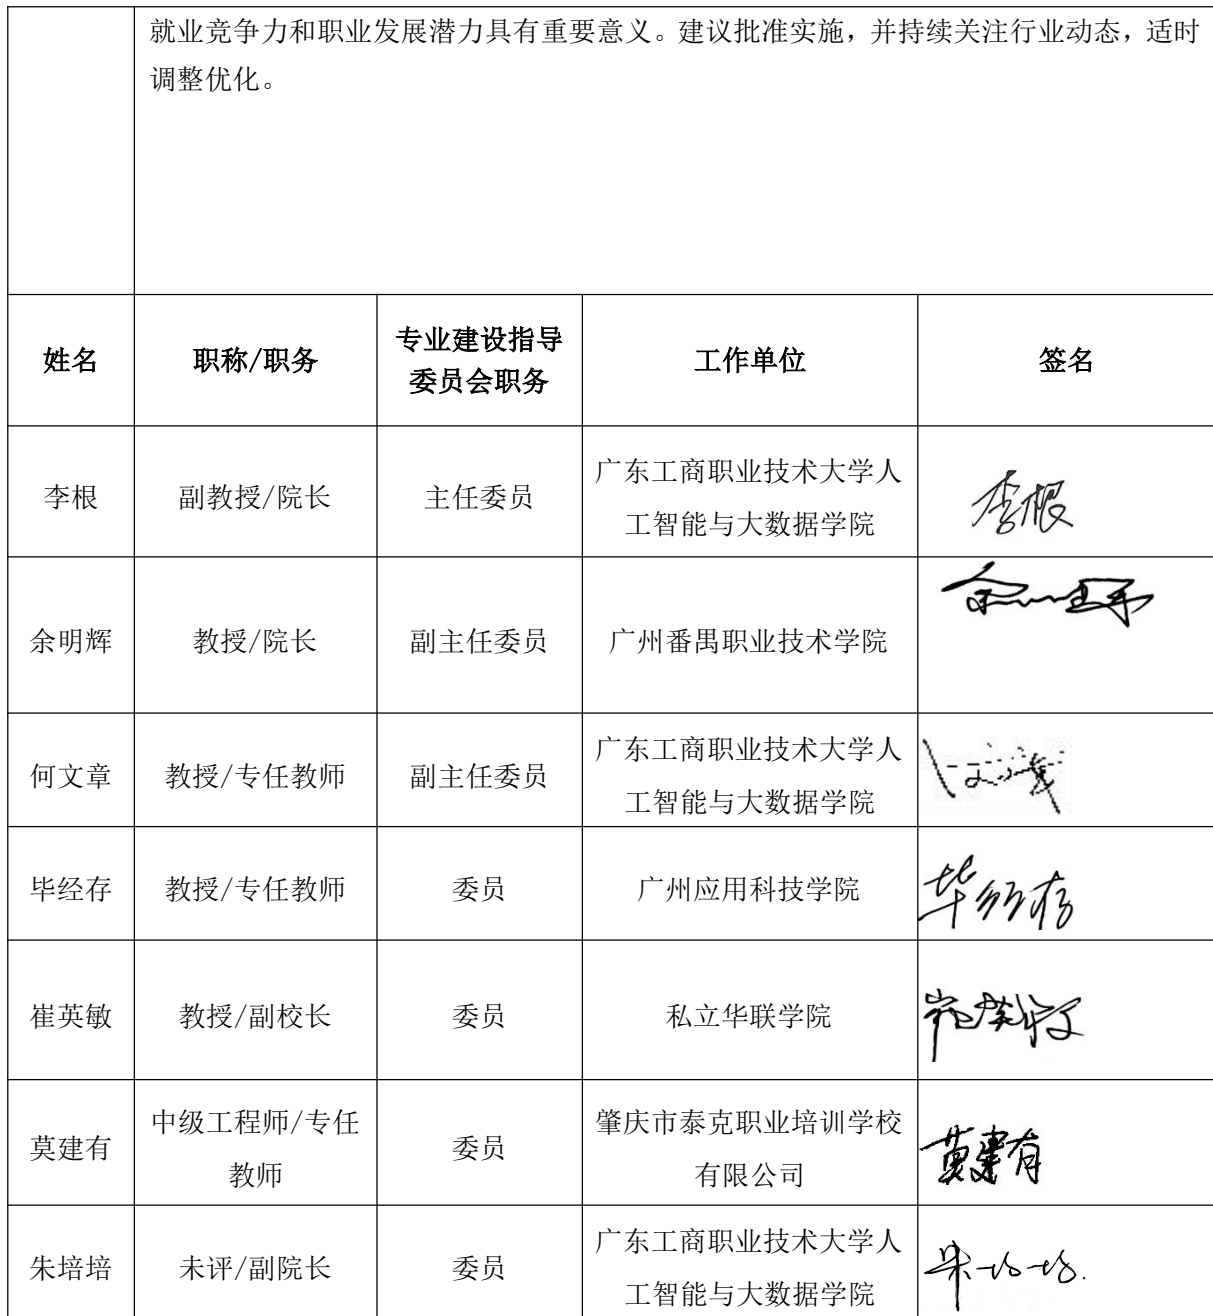 就业竞争力和职业发展潜力具有重要意义。建议批准实施，并持续关注行业动态，适时
调整优化。
姓名 职称/职务 专业建设指导 工作单位 签名
委员会职务
李根 副教授/院长 主任委员 广东工商职业技术大学人 李根
工智能与大数据学院
余明辉 教授/院长 副主任委员 广州番禺职业技术学院
何文章 教授/专任教师 副主任委员 广东工商职业技术大学人
工智能与大数据学院
毕经存 教授/专任教师 委员 广州应用科技学院 毕经存
崔英敏 教授/副校长 委员 私立华联学院 崔英敏
莫建有 中级工程师/专任 委员 肇庆市泰克职业培训学校 莫建有
教师 有限公司
朱培培 未评/副院长 委员 广东工商职业技术大学人 朱培培
工智能与大数据学院